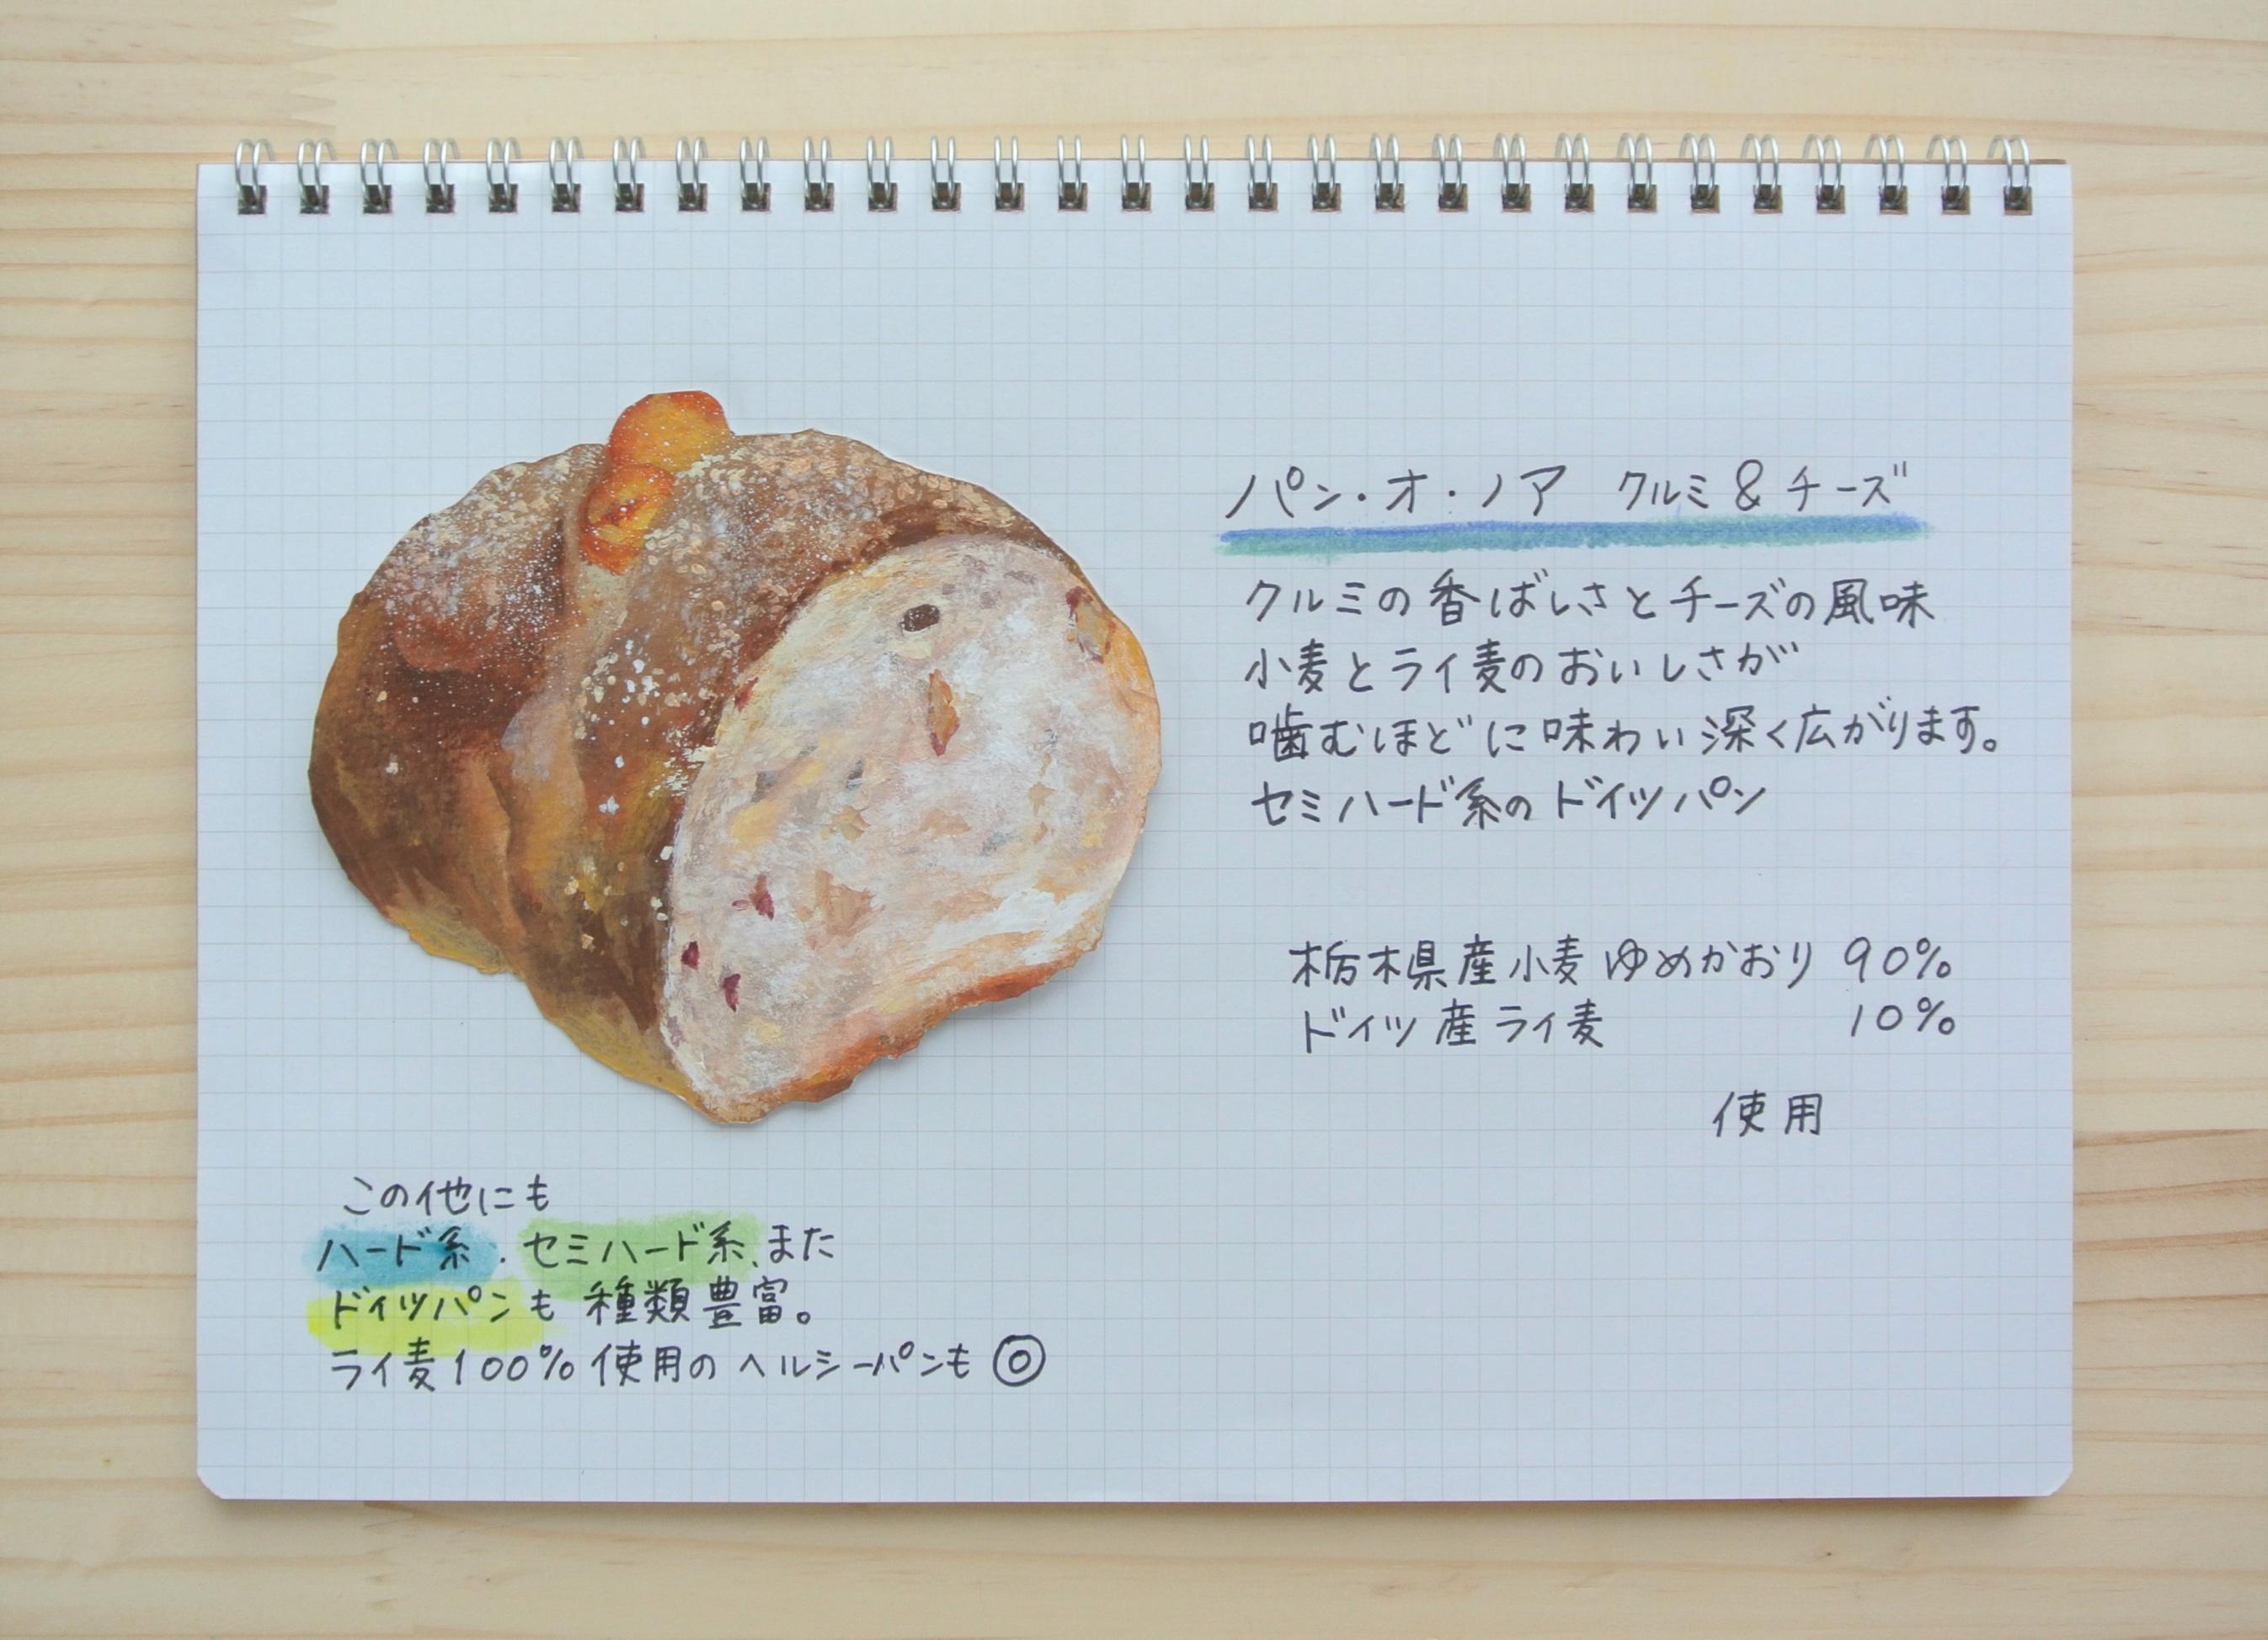 パン・オ・ノア クルミ&チーズ
クルミの香ばしさとチーズの風味
小麦とライ麦のおいしさが
噛むほどに味わい深く広がります。
セミハード系のドイツパン
栃木県産小麦ゆめかおり 90%
ドイツ産ライ麦 10%
使用
この他にも
ハード系・セミハード系、また
ドイツパンも種類豊富。
ライ麦100%使用のヘルシーパンも◎